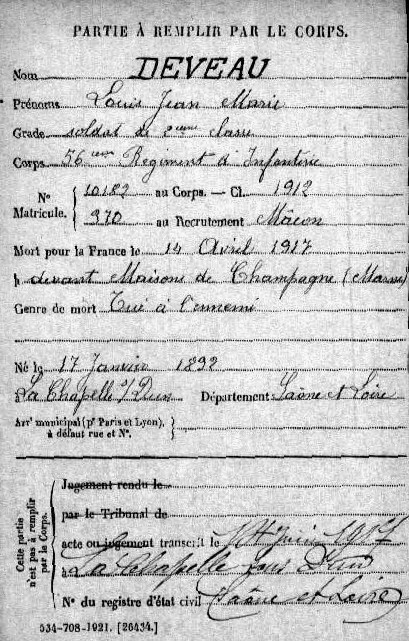 PARTIE À REMPLIR PAR LE CORPS.
Nom DEVEAU
Prénoms Louis Jean Marie
Grade soldat de 2eme classe
Corps 56eme Régiment d'Infanterie
N° Matricule. 10182 au Corps. — Cl. 1912
970 au Recrutement Mâcon
Mort pour la France le 14 Avril 1917
à devant Maisons de Champagne (Marne)
Genre de mort Tué à l'ennemi
Né le 17 Janvier 1892
à La Chapelle s/Dun Département Saône et Loire
Arrt municipal (pr Paris et Lyon),
à défaut rue et N°.
Cette partie n'est pas à remplir par le Corps.
Jugement rendu le
par le Tribunal de
acte ou jugement transcrit le 14 Juin 1917
à La Chapelle sous Dun
N° du registre d'état civil Saône et Loire
534-708-1921. [26434.]